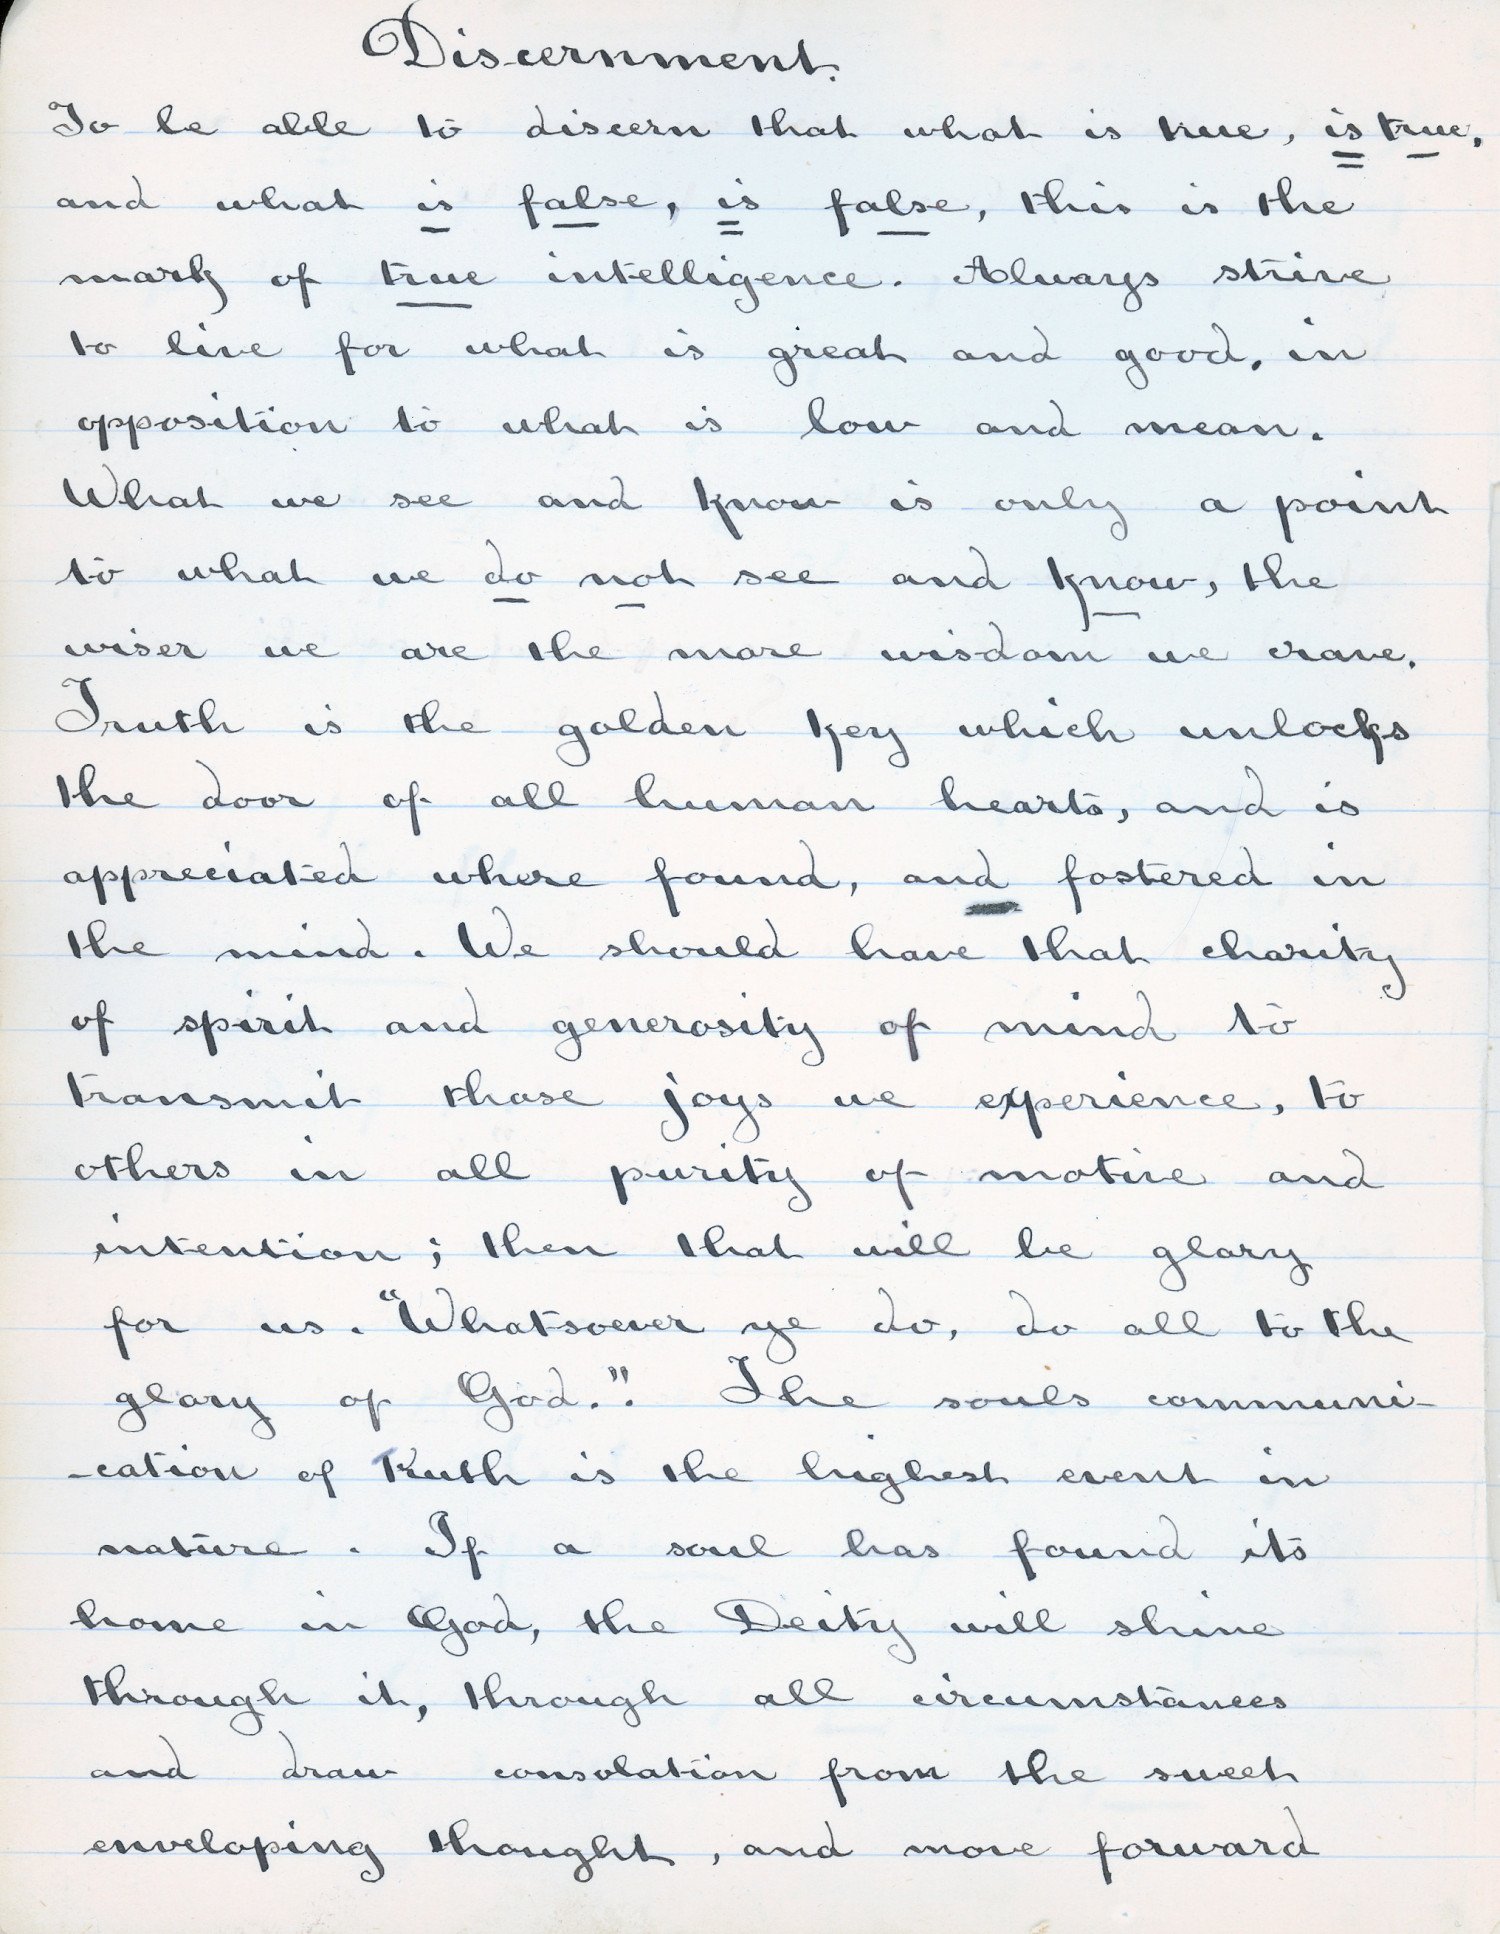 Discernment.
To be able to discern that what is true, is true,
and what is false, is false, this is the
mark of true intelligence. Always strive
to live for what is great and good, in
opposition to what is low and mean.
What we see and know is only a point
to what we do not see and know, the
wiser we are the more wisdom we crave.
Truth is the golden key which unlocks
the door of all human hearts, and is
appreciated where found, and fostered in
the mind. We should have that charity
of spirit and generosity of mind to
transmit those joys we experience, to
others in all purity of motive and
intention; then that will be glory
for us. "Whatsoever ye do, do all to the
glory of God.". The souls communi-
-cation of Truth is the highest event in
nature. If a soul has found its
home in God, the Deity will shine
through it, through all circumstances
and draw consolation from the sweet
enveloping thought, and move forward